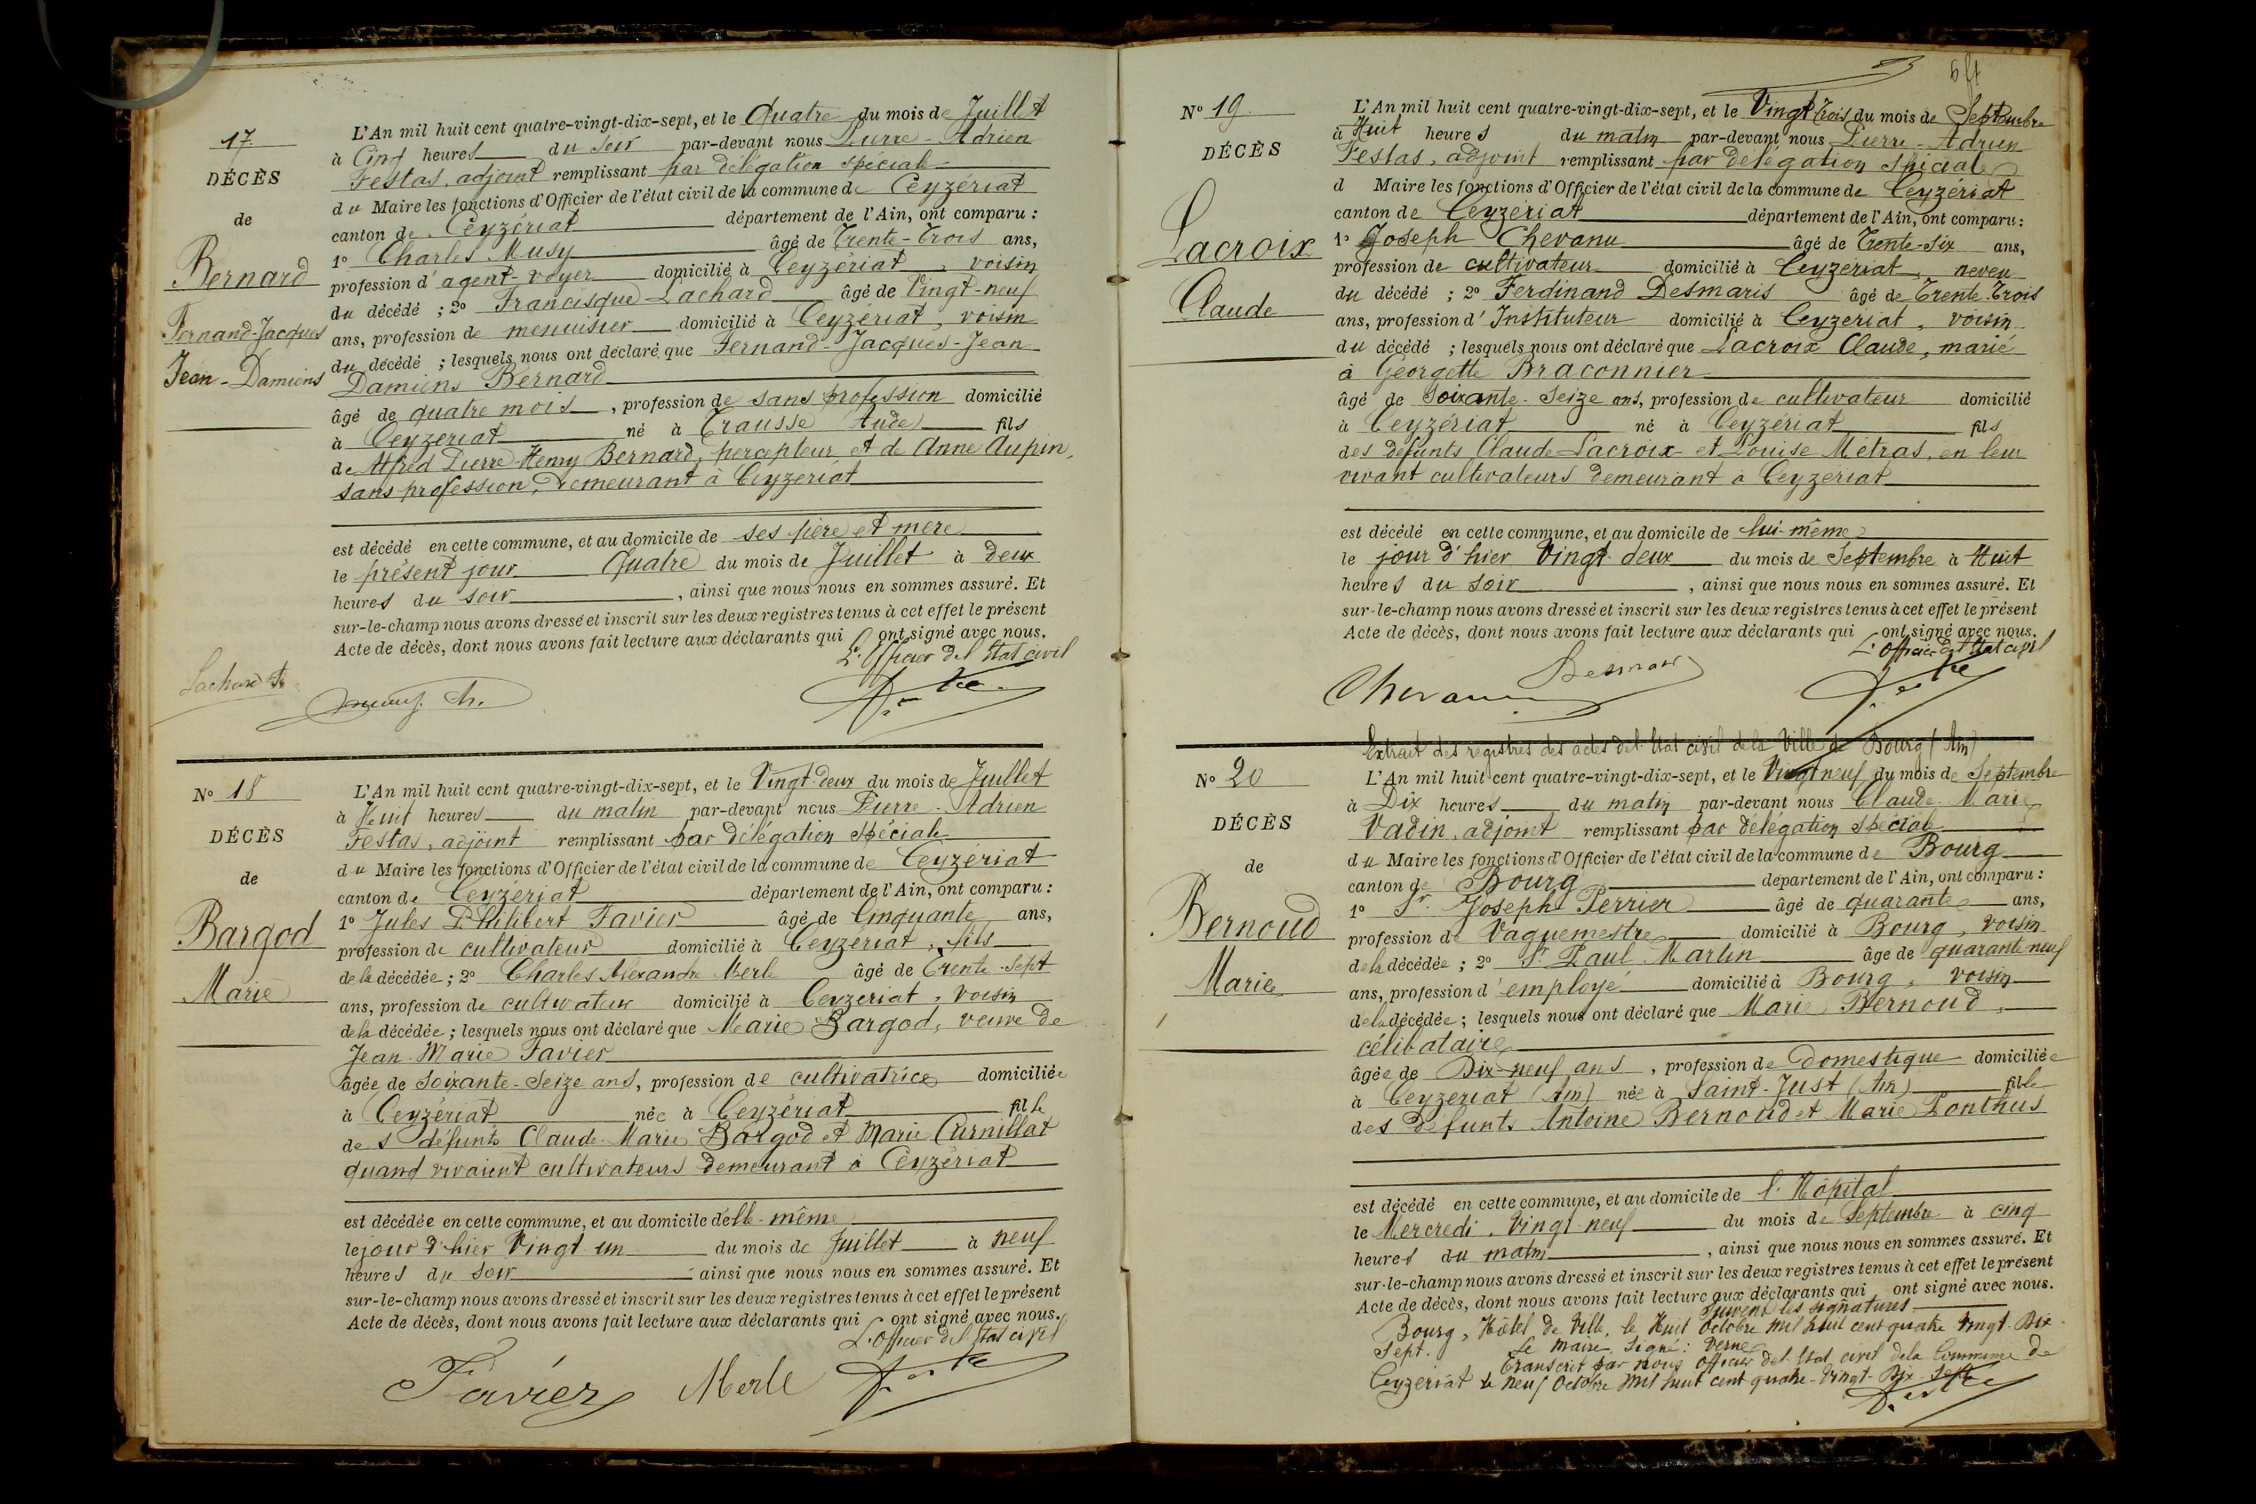 17
DÉCÈS
de
Bernard
Fernand-Jacques
Jean-Damiens
L'An mil huit cent quatre-vingt-dix-sept, et le Quatre du mois de Juillet
à Cinq heures du soir par-devant nous Pierre-Adrien
Festas, adjoint remplissant par délégation spéciale
du Maire les fonctions d'Officier de l'état civil de la commune de Ceyzériat
canton de Ceyzériat département de l'Ain, ont comparu :
1º Charles Musy âgé de Trente-Trois ans,
profession d'agent-voyer domicilié à Ceyzériat, voisin
du décédé ; 2º Francisque Lachard âgé de Vingt-neuf
ans, profession de menuisier domicilié à Ceyzériat, voisin
du décédé ; lesquels nous ont déclaré que Fernand-Jacques-Jean
Damiens Bernard
âgé de quatre mois, profession de sans profession domicilié
à Ceyzériat né à Trausse Aude fils
de Alfred Pierre Henry Bernard, percepteur et de Anne Aupin,
sans profession, demeurant à Ceyzériat
est décédé en cette commune, et au domicile de ses père et mère
le présent jour Quatre du mois de Juillet à deux
heures du soir, ainsi que nous nous en sommes assuré. Et
sur-le-champ nous avons dressé et inscrit sur les deux registres tenus à cet effet le présent
Acte de décès, dont nous avons fait lecture aux déclarants qui ont signé avec nous.
L'Officier del'Etat civil
Lachard
Musy Ch.
Nº 18
DÉCÈS
de
Bargod
Marie
L'An mil huit cent quatre-vingt-dix-sept, et le Vingt-deux du mois de Juillet
à Huit heures du matin par-devant nous Pierre-Adrien
Festas, adjoint remplissant par délégation spéciale
du Maire les fonctions d'Officier de l'état civil de la commune de Ceyzériat
canton de Ceyzériat département de l'Ain, ont comparu :
1º Jules Philibert Favier âgé de Cinquante ans,
profession de cultivateur domicilié à Ceyzériat, fils
de la décédée ; 2º Charles Alexandre Merle âgé de Trente-Sept
ans, profession de cultivateur domicilié à Ceyzériat, voisin
de la décédée ; lesquels nous ont déclaré que Marie Bargod, veuve de
Jean-Marie Favier
âgée de soixante-Seize ans, profession de cultivatrice domiciliée
à Ceyzériat née à Ceyzériat fille
des défunts Claude-Marie Bargod et Marie Curnillat
quand vivaient cultivateurs demeurant à Ceyzériat
est décédée en cette commune, et au domicile d'elle-même
le jour d'hier Vingt un du mois de Juillet à neuf
heures du soir ainsi que nous nous en sommes assuré. Et
sur-le-champ nous avons dressé et inscrit sur les deux registres tenus à cet effet le présent
Acte de décès, dont nous avons fait lecture aux déclarants qui ont signé avec nous.
L'Officier del'Etat civil
Favier Merle
Nº 19
DÉCÈS
Lacroix
Claude
L'An mil huit cent quatre-vingt-dix-sept, et le Vingt Trois du mois de Septembre
à Huit heures du matin par-devant nous Pierre-Adrien
Festas, adjoint remplissant par délégation spéciale
d Maire les fonctions d'Officier de l'état civil de la commune de Ceyzériat
canton de Ceyzériat département de l'Ain, ont comparu :
1º Joseph Chevanu âgé de Trente-Six ans,
profession de cultivateur domicilié à Ceyzériat, neveu
du décédé ; 2º Ferdinand Desmaris âgé de Trente-Trois
ans, profession d'Instituteur domicilié à Ceyzériat, voisin
du décédé ; lesquels nous ont déclaré que Lacroix Claude, marié
à Georgette Braconnier
âgé de Soixante-Seize ans, profession de cultivateur domicilié
à Ceyzériat né à Ceyzériat fils
des défunts Claude Lacroix et Louise Métras, en leur
vivant cultivateurs demeurant à Ceyzériat
est décédé en cette commune, et au domicile de lui-même
le jour d'hier Vingt-deux du mois de Septembre à Huit
heures du soir, ainsi que nous nous en sommes assuré. Et
sur-le-champ nous avons dressé et inscrit sur les deux registres tenus à cet effet le présent
Acte de décès, dont nous avons fait lecture aux déclarants qui ont signé avec nous.
L'Officier del'Etat civil
Desmaris
Chevanu
Extrait des registres des actes del'Etat civil dela Ville de Bourg (Ain)
Nº 20
DÉCÈS
de
Bernoud
Marie
L'An mil huit cent quatre-vingt-dix-sept, et le Vingt neuf du mois de Septembre
à Dix heures du matin par-devant nous Claude-Marie
Vadin, adjoint remplissant par délégation spéciale
du Maire les fonctions d'Officier de l'état civil de la commune de Bourg
canton de Bourg département de l'Ain, ont comparu :
1º Sr. Joseph Perrier âgé de quarante ans,
profession de Vaguemestre domicilié à Bourg, voisin
de la décédée ; 2º Sr Paul Martin âge de quarante neuf
ans, profession d'employé domicilié à Bourg, voisin
de la décédée ; lesquels nous ont déclaré que Marie Bernoud,
célibataire
âgée de Dix-neuf ans, profession de domestique domiciliée
à Ceyzériat (Ain) née à Saint-Just (Ain) fille
des défunts Antoine Bernoud et Marie Ponthus
est décédé en cette commune, et au domicile de l'Hôpital
le Mercredi, Vingt-neuf du mois de Septembre à cinq
heures du matin, ainsi que nous nous en sommes assuré. Et
sur-le-champ nous avons dressé et inscrit sur les deux registres tenus à cet effet le présent
Acte de décès, dont nous avons fait lecture aux déclarants qui ont signé avec nous.
Suivent les signatures
Bourg, Hôtel de Ville, le Huit Octobre mil huit cent quatre Vingt-Dix-
Sept. Le Maire, Signé : Verne
Transcrit par nous Officier del'Etat civil dela Commune de
Ceyzériat le neuf Octobre mil huit cent quatre-Vingt-Dix-Sept